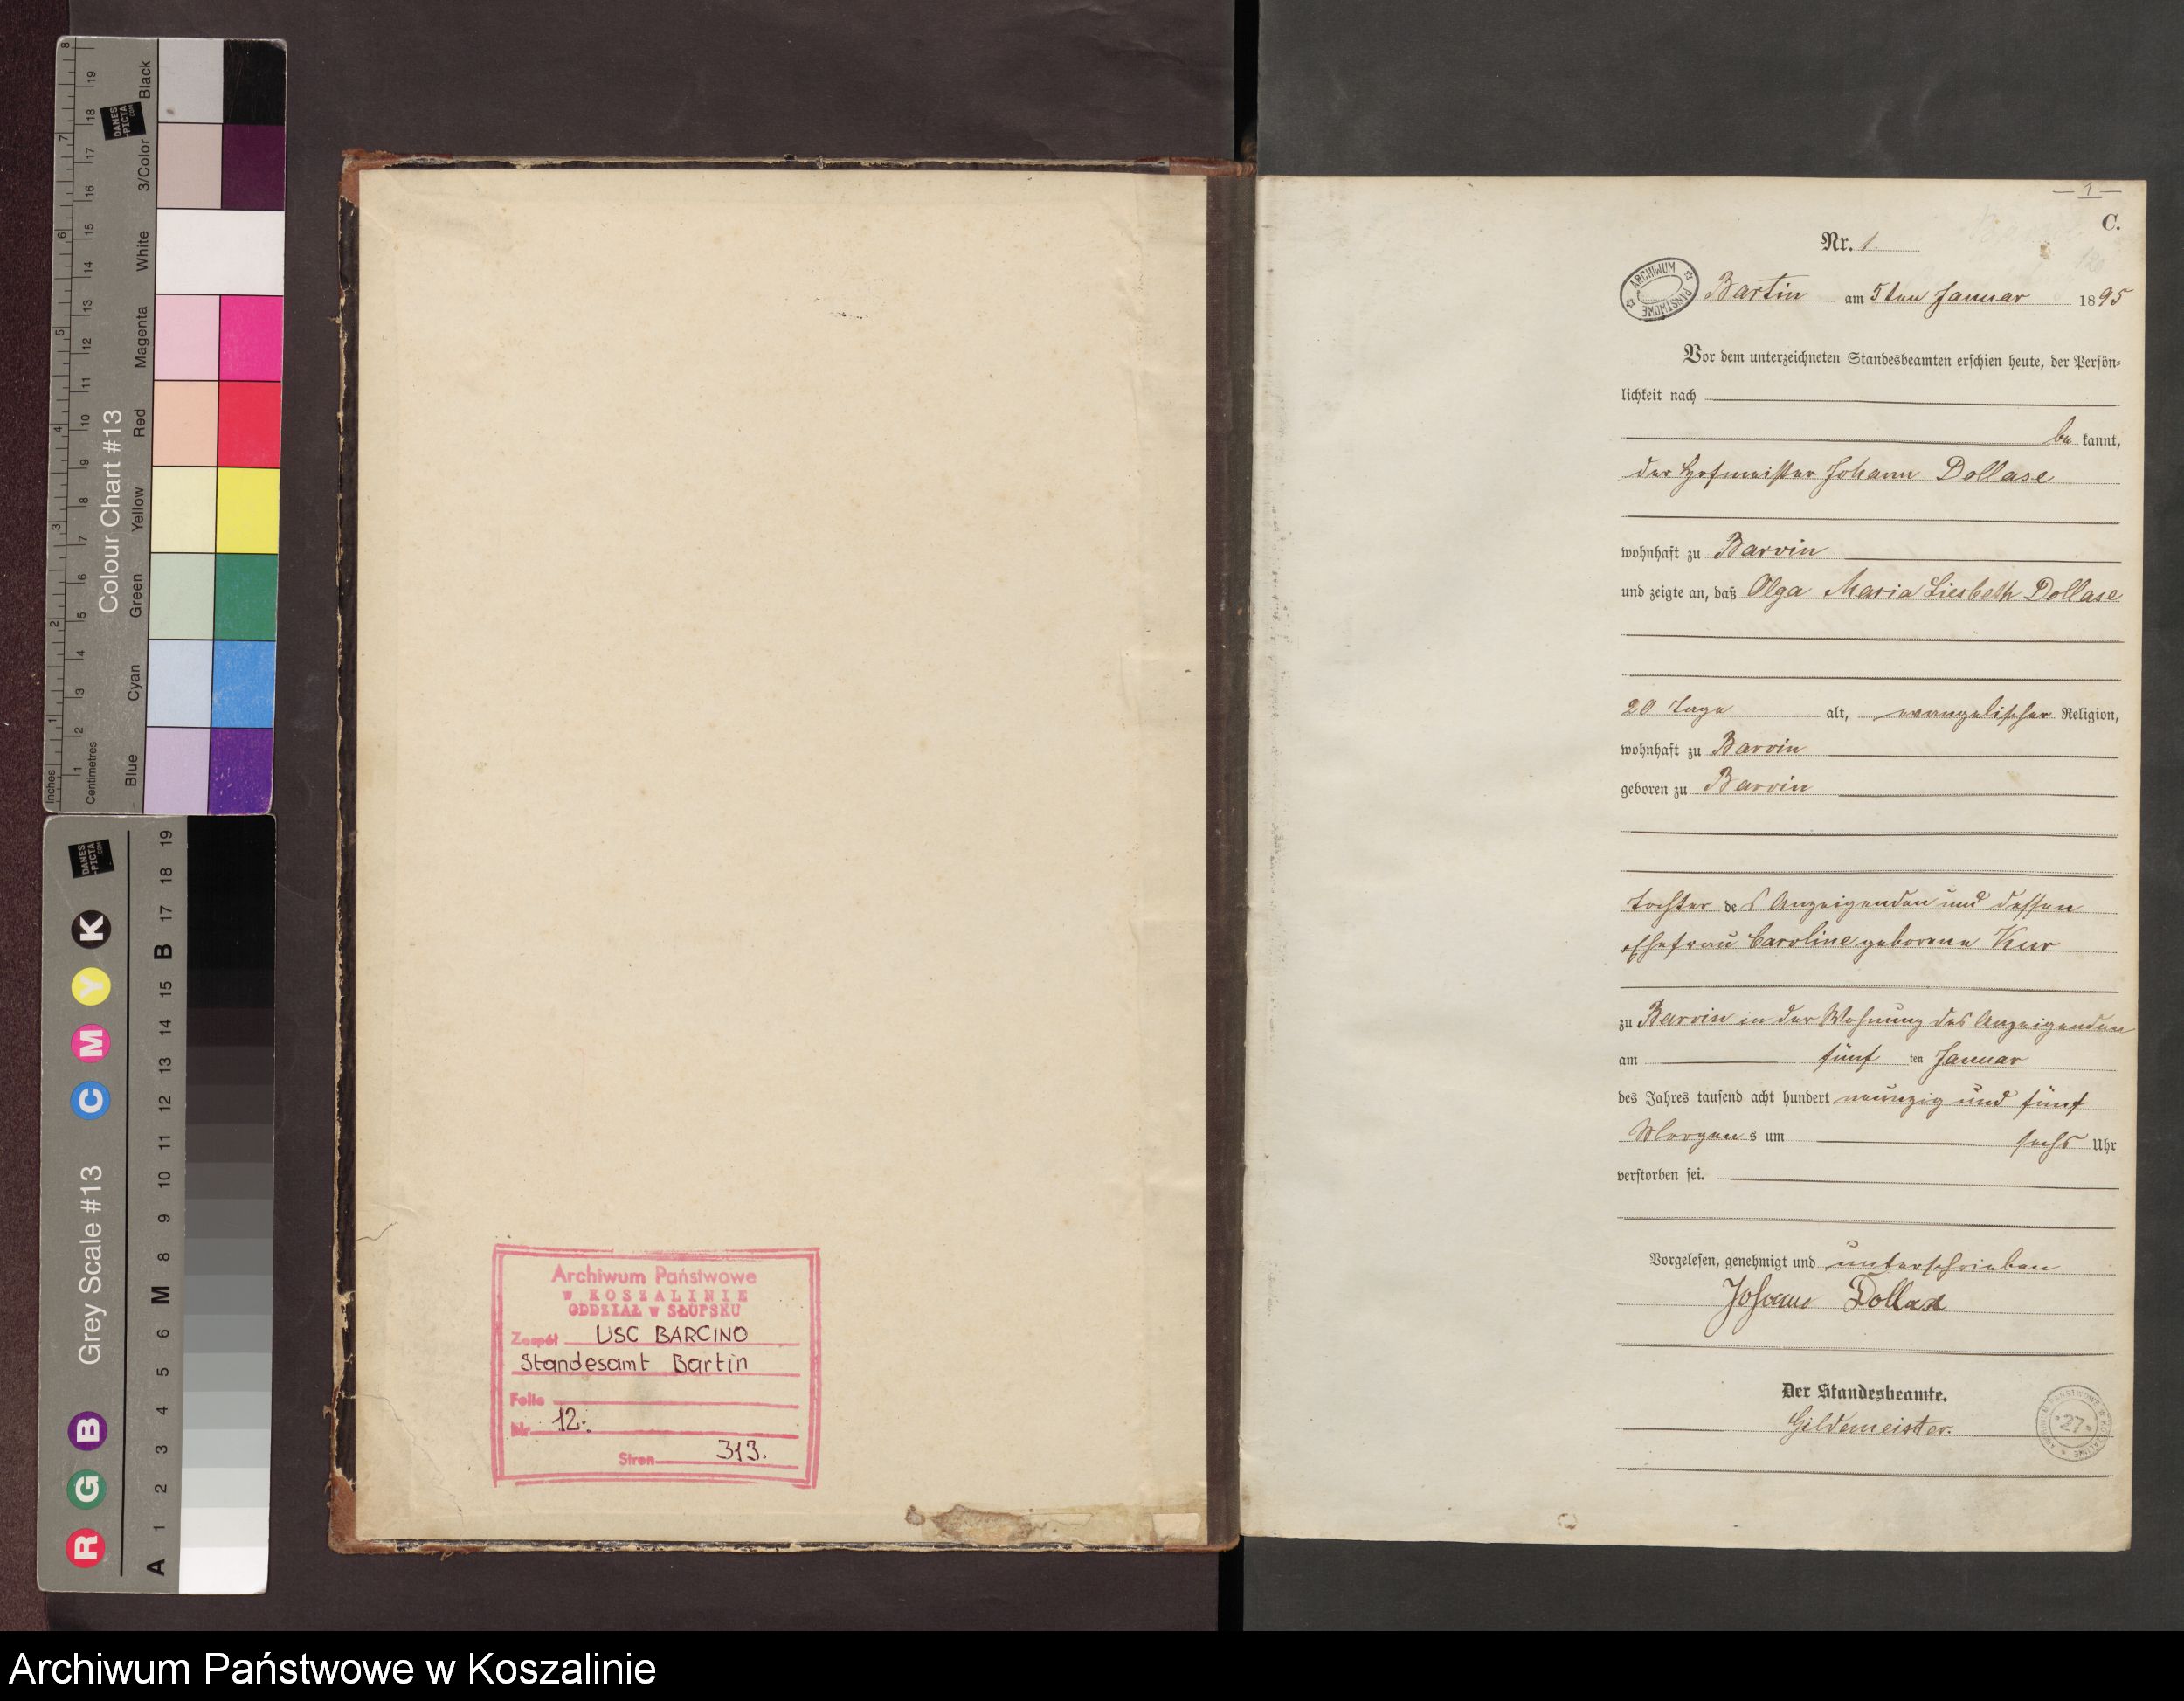 Inches
Centimetres
Colour Chart #13
Blue
Cyan
Green
Yellow
Red
Magenta
White
3/Color
Black
DANES
-PICTA
.COM
Grey Scale #13
R G B C M Y K
A 1 2 3 4 5 6 M 8 9 10 11 12 13 14 15 B 17 18 19
DANES
-PICTA
.COM
Archiwum Państwowe
w KOSZALINIE
ODDZIAŁ w SŁUPSKU
Zespół USC BARCINO
Standesamt Bartin
Folio
Nr 12.
Stron 313.
— 1 —
C.
Nr. 1.
ARCHIWUM PAŃSTWOWE
Bartin am 5ten Januar 1895
Vor dem unterzeichneten Standesbeamten erschien heute, der Persön-
lichkeit nach
be kannt,
der Hofmeister Johann Dollase
wohnhaft zu Barvin
und zeigte an, daß Olga Maria Liesbeth Dollase
20 Tage alt, evangelischer Religion,
wohnhaft zu Barvin
geboren zu Barvin
Tochter des Anzeigenden und dessen
Ehefrau Caroline geborene Kur
zu Barvin in der Wohnung des Anzeigenden
am fünf ten Januar
des Jahres tausend acht hundert neunzig und fünf
Morgens um sechs Uhr
verstorben sei.
Vorgelesen, genehmigt und unterschrieben
Johann Dollase
Der Standesbeamte.
Gildemeister.
27
Archiwum Państwowe w Koszalinie